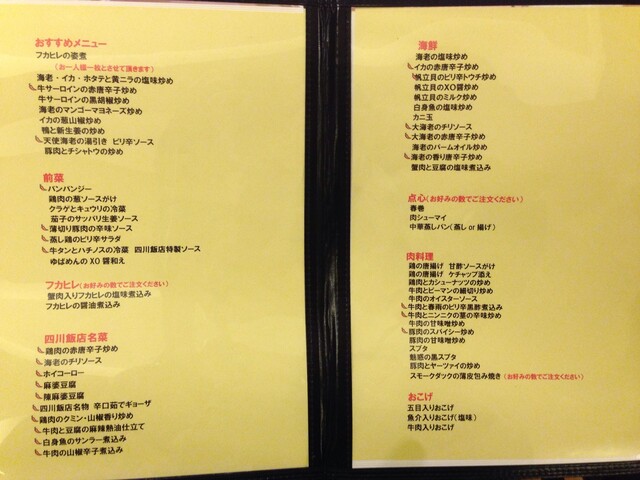 おすすめメニュー
フカヒレの姿煮
(お一人様一枚とさせて頂きます)
海老・イカ・ホタテと黄ニラの塩味炒め
牛サーロインの赤唐辛子炒め
牛サーロインの黒胡椒炒め
海老のマンゴーマヨネーズ炒め
イカの葱山椒炒め
鴨と新生姜の炒め
天使海老の湯引き ピリ辛ソース
豚肉とチシャトウの炒め
前菜
バンバンジー
鶏肉の葱ソースがけ
クラゲとキュウリの冷菜
茄子のサッパリ生姜ソース
薄切り豚肉の辛味ソース
蒸し鶏のピリ辛サラダ
牛タンとハチノスの冷菜 四川飯店特製ソース
ゆばめんのXO醤和え
フカヒレ(お好みの数でご注文ください)
蟹肉入りフカヒレの塩味煮込み
フカヒレの醤油煮込み
四川飯店名菜
鶏肉の赤唐辛子炒め
海老のチリソース
ホイコーロー
麻婆豆腐
辣麻婆豆腐
四川飯店名物 辛口茹でギョーザ
鶏肉のクミン・山椒香り炒め
牛肉と豆腐の麻辣熱油仕立て
白身魚のサンラー煮込み
牛肉の山椒辛子煮込み
海鮮
海老の塩味炒め
イカの赤唐辛子炒め
帆立貝のピリ辛トウチ炒め
帆立貝のXO醤炒め
帆立貝のミルク炒め
白身魚の塩味炒め
カニ玉
大海老のチリソース
大海老の赤唐辛子炒め
海老のパームオイル炒め
海老の香り唐辛子炒め
蟹肉と豆腐の塩味煮込み
点心(お好みの数でご注文ください)
春巻
肉シューマイ
中華蒸しパン(蒸し or 揚げ)
肉料理
鶏の唐揚げ 甘酢ソースがけ
鶏の唐揚げ ケチャップ添え
鶏肉とカシューナッツの炒め
牛肉とピーマンの細切り炒め
牛肉のオイスターソース
牛肉と春雨のピリ辛黒酢煮込み
牛肉とニンニクの茎の辛味炒め
牛肉の甘味噌炒め
豚肉のスパイシー炒め
豚肉の甘味噌炒め
スブタ
魅惑の黒スブタ
豚肉とヤーツァイの炒め
スモークダックの薄皮包み焼き(お好みの数でご注文ください)
おこげ
五目入りおこげ
魚介入りおこげ(塩味)
牛肉入りおこげ